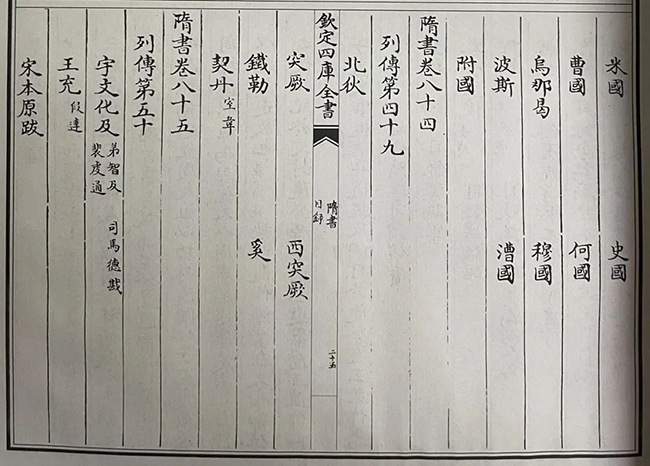 米國 史國
曹國 何國
烏那曷 穆國
波斯 漕國
附國
隋書卷八十四
列傳第四十九
北狄
欽定四庫全書
隋書
目錄
二十五
突厥 西突厥
鐵勒 奚
契丹 室韋
隋書卷八十五
列傳第五十
宇文化及 弟智及 司馬德戡
裴虔通
王充 段達
宋本原跋